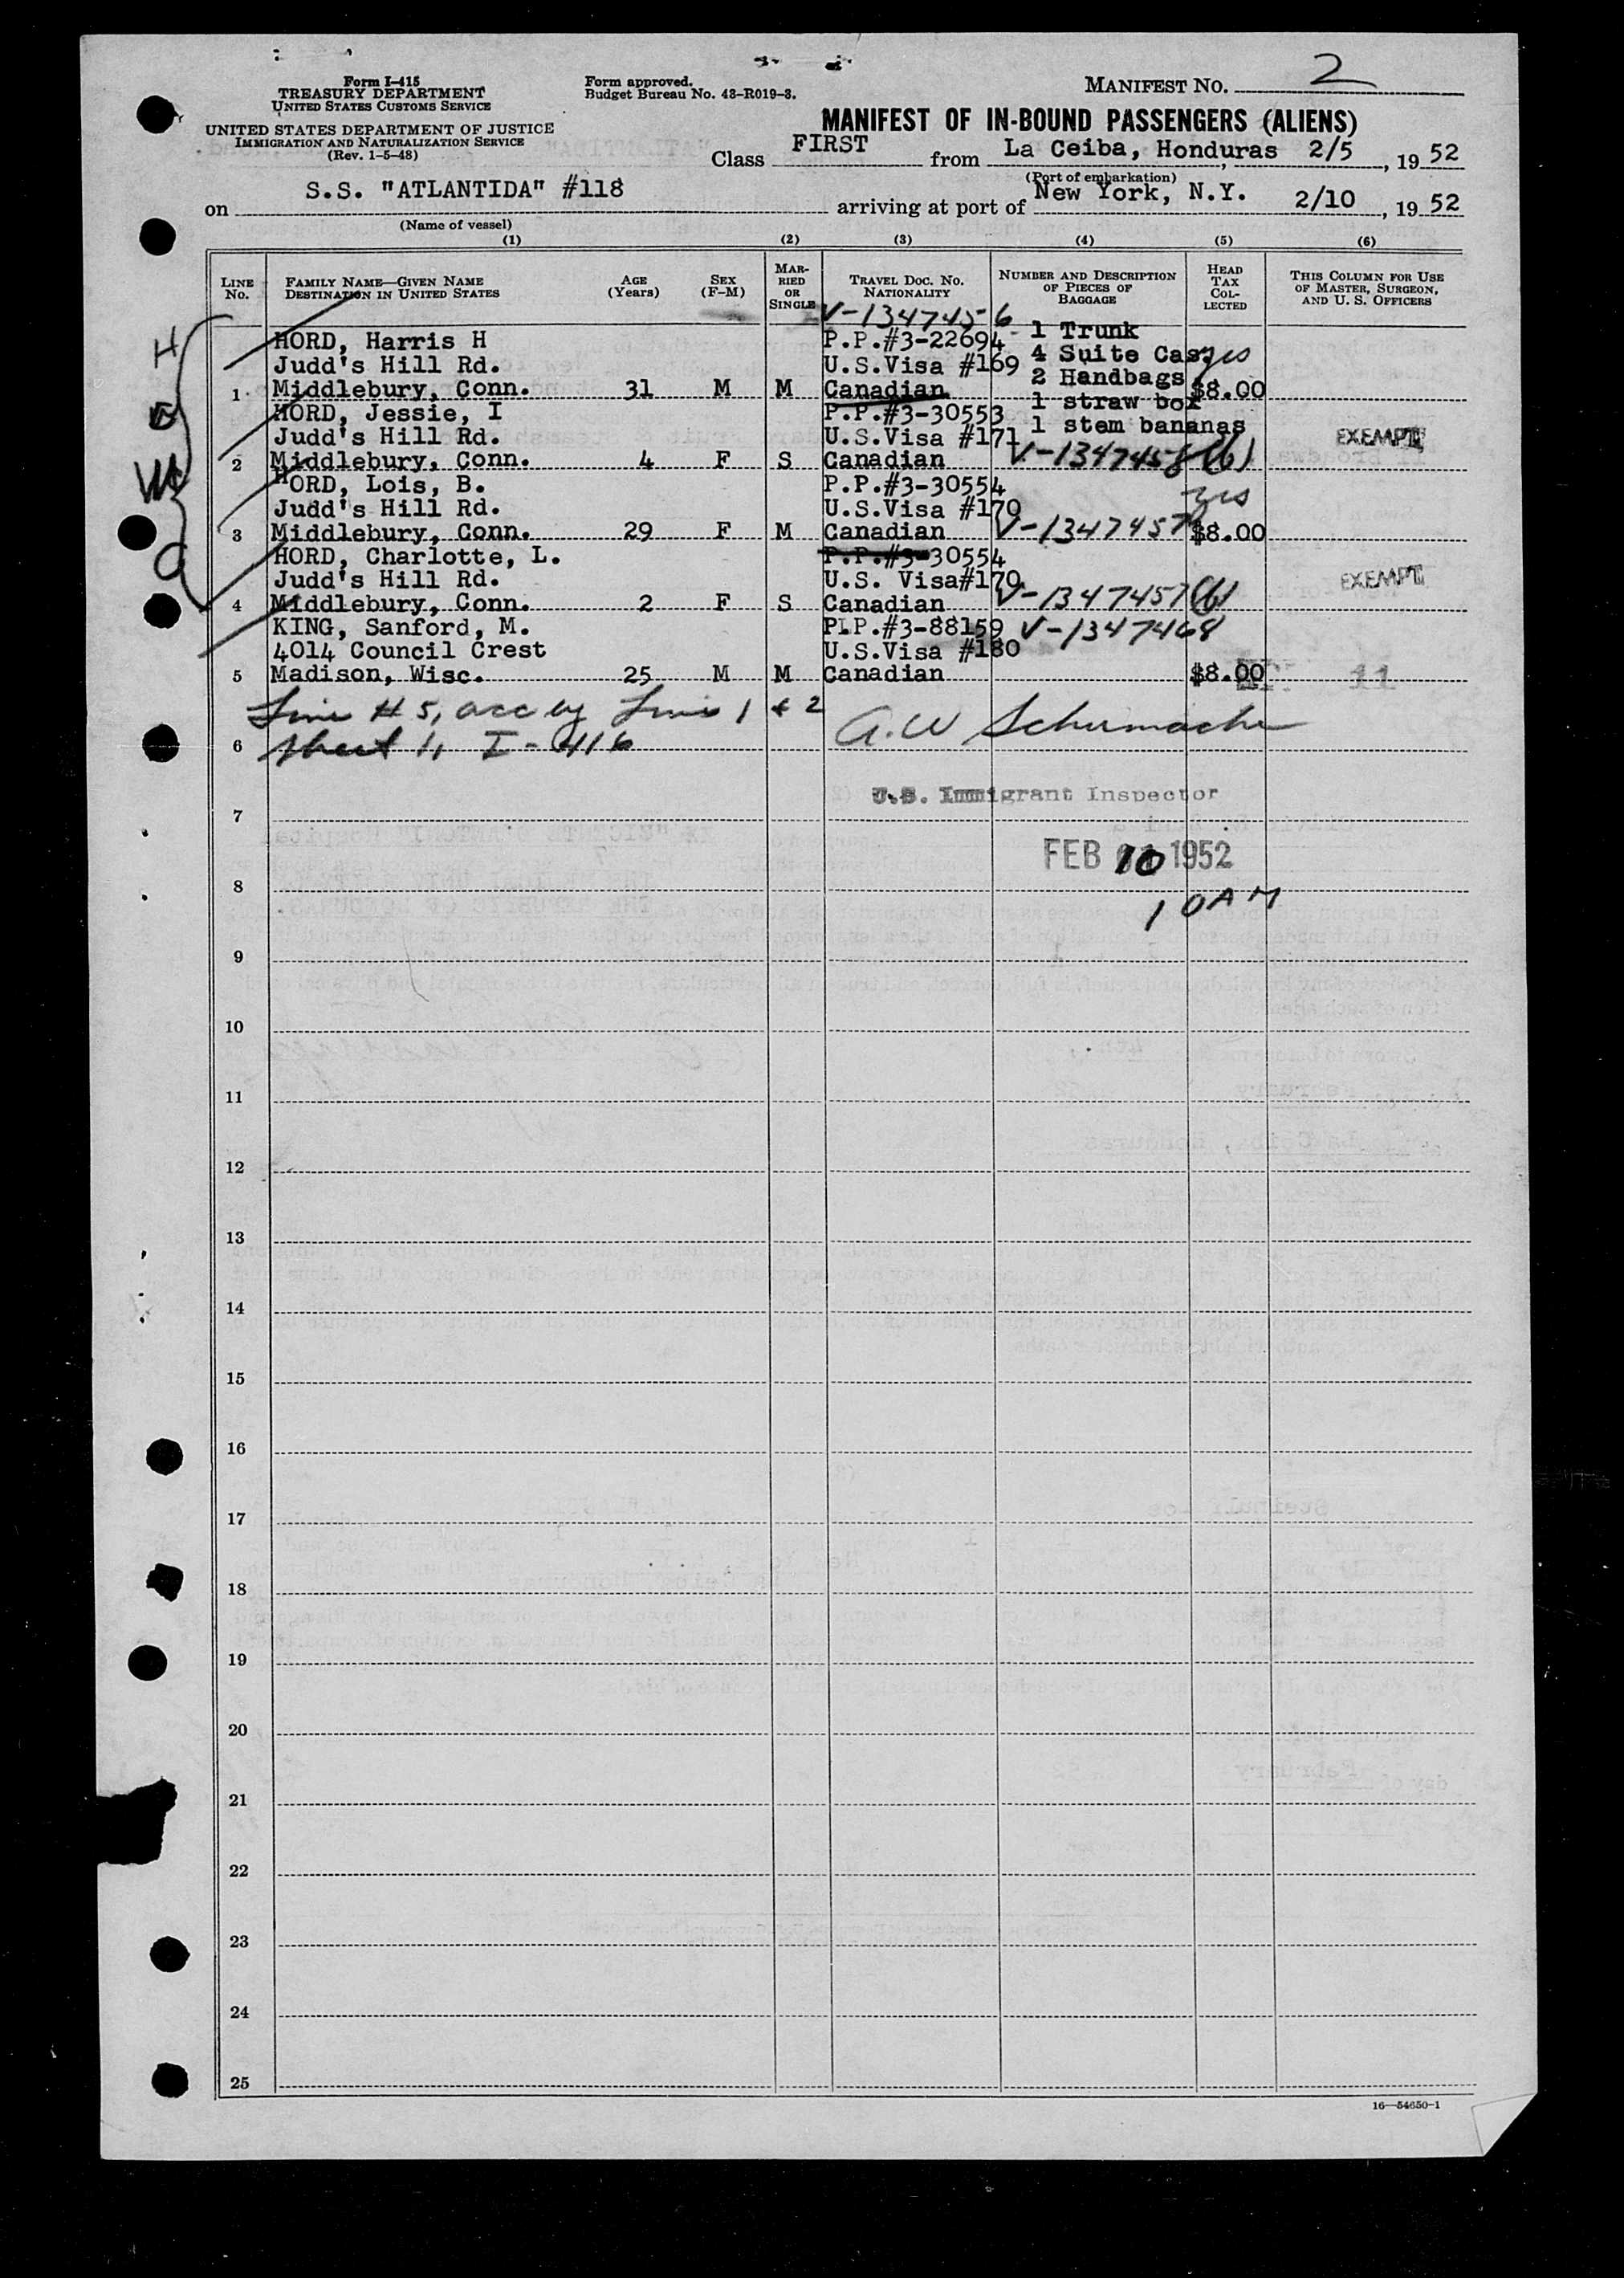 Form I-415
TREASURY DEPARTMENT
UNITED STATES CUSTOMS SERVICE
UNITED STATES DEPARTMENT OF JUSTICE
IMMIGRATION AND NATURALIZATION SERVICE
(Rev. 1-5-48)
Form approved.
Budget Bureau No. 43-R019-3.
MANIFEST NO. 2
MANIFEST OF IN-BOUND PASSENGERS (ALIENS)
Class FIRST from La Ceiba, Honduras 2/5, 19 52
(Port of embarkation)
on S.S. "ATLANTIDA" #118 arriving at port of New York, N.Y. 2/10, 19 52
(Name of vessel)
(1) (2) (3) (4) (5) (6)
LINE NO. FAMILY NAME—GIVEN NAME DESTINATION IN UNITED STATES AGE (Years) SEX (F-M) MARRIED OR SINGLE TRAVEL DOC. NO. NATIONALITY NUMBER AND DESCRIPTION OF PIECES OF BAGGAGE HEAD TAX COLLECTED THIS COLUMN FOR USE OF MASTER, SURGEON, AND U. S. OFFICERS
V-1347456
HORD, Harris H P.P.#3-22694 1 Trunk
Judd's Hill Rd. U.S.Visa #169 4 Suite Cas. yes
1 Middlebury, Conn. 31 M M Canadian 2 Handbags $8.00
HORD, Jessie, I P.P.#3-30553 1 straw box
Judd's Hill Rd. U.S.Visa #171 1 stem bananas EXEMPT
2 Middlebury, Conn. 4 F S Canadian V-1347458(6)
HORD, Lois, B. P.P.#3-30554 yes
Judd's Hill Rd. U.S.Visa #170
3 Middlebury, Conn. 29 F M Canadian V-1347457 $8.00
HORD, Charlotte, L. P.P.#3-30554
Judd's Hill Rd. U.S. Visa#170 EXEMPT
4 Middlebury, Conn. 2 F S Canadian V-1347457(6)
KING, Sanford, M. P.P.#3-88159 V-1347468
4014 Council Crest U.S.Visa #180
5 Madison, Wisc. 25 M M Canadian $8.00 11
Line # 5, acc by Line 1 & 2 A.W Schumacher
6 sheet 1, I-416
U.S. Immigrant Inspector
7
FEB 10 1952
8
10 AM
9
10
11
12
13
14
15
16
17
18
19
20
21
22
23
24
25
16—54650-1